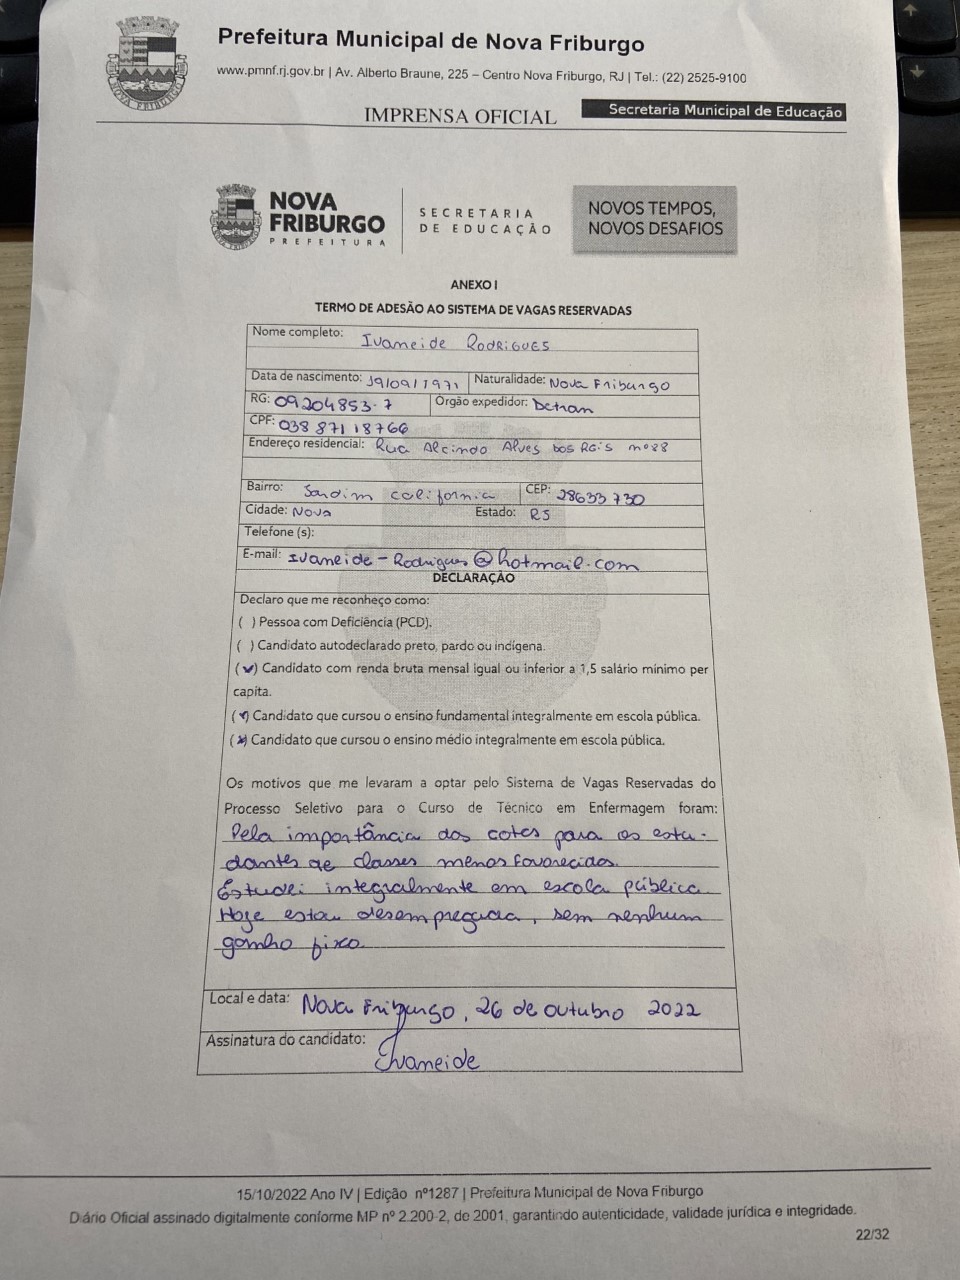 Prefeitura Municipal de Nova Friburgo
www.pmnf.rj.gov.br | Av. Alberto Braune, 225 – Centro Nova Friburgo, RJ | Tel.: (22) 2525-9100
IMPRENSA OFICIAL
Secretaria Municipal de Educação
NOVA FRIBURGO
PREFEITURA
SECRETARIA DE EDUCAÇÃO
NOVOS TEMPOS,
NOVOS DESAFIOS
ANEXO I
TERMO DE ADESÃO AO SISTEMA DE VAGAS RESERVADAS
Nome completo: Ivaneide Rodrigues
Data de nascimento: 19/09/1971 Naturalidade: Nova Friburgo
RG: 09204853-7 Orgão expedidor: Detran
CPF: 038 871 187 66
Endereço residencial: Rua Alcindo Alves dos Reis nº 88
Bairro: Jardim California CEP: 28633 730
Cidade: Nova Estado: RJ
Telefone (s):
E-mail: Ivaneide-Rodrigues@hotmail.com
DECLARAÇÃO
Declaro que me reconheço como:
( ) Pessoa com Deficiência (PCD).
( ) Candidato autodeclarado preto, pardo ou indígena.
(✓) Candidato com renda bruta mensal igual ou inferior a 1,5 salário mínimo per
capita.
(✓) Candidato que cursou o ensino fundamental integralmente em escola pública.
(x) Candidato que cursou o ensino médio integralmente em escola pública.
Os motivos que me levaram a optar pelo Sistema de Vagas Reservadas do
Processo Seletivo para o Curso de Técnico em Enfermagem foram:
Pela importância das cotas para os estu-
dantes de classes menos favorecidas.
Estudei integralmente em escola pública
Hoje estou desempregada, sem nenhum
ganho fixo.
Local e data: Nova Friburgo, 26 de outubro 2022
Assinatura do candidato: Ivaneide
15/10/2022 Ano IV | Edição nº1287 | Prefeitura Municipal de Nova Friburgo
Diário Oficial assinado digitalmente conforme MP nº 2.200-2, de 2001, garantindo autenticidade, validade jurídica e integridade.
22/32